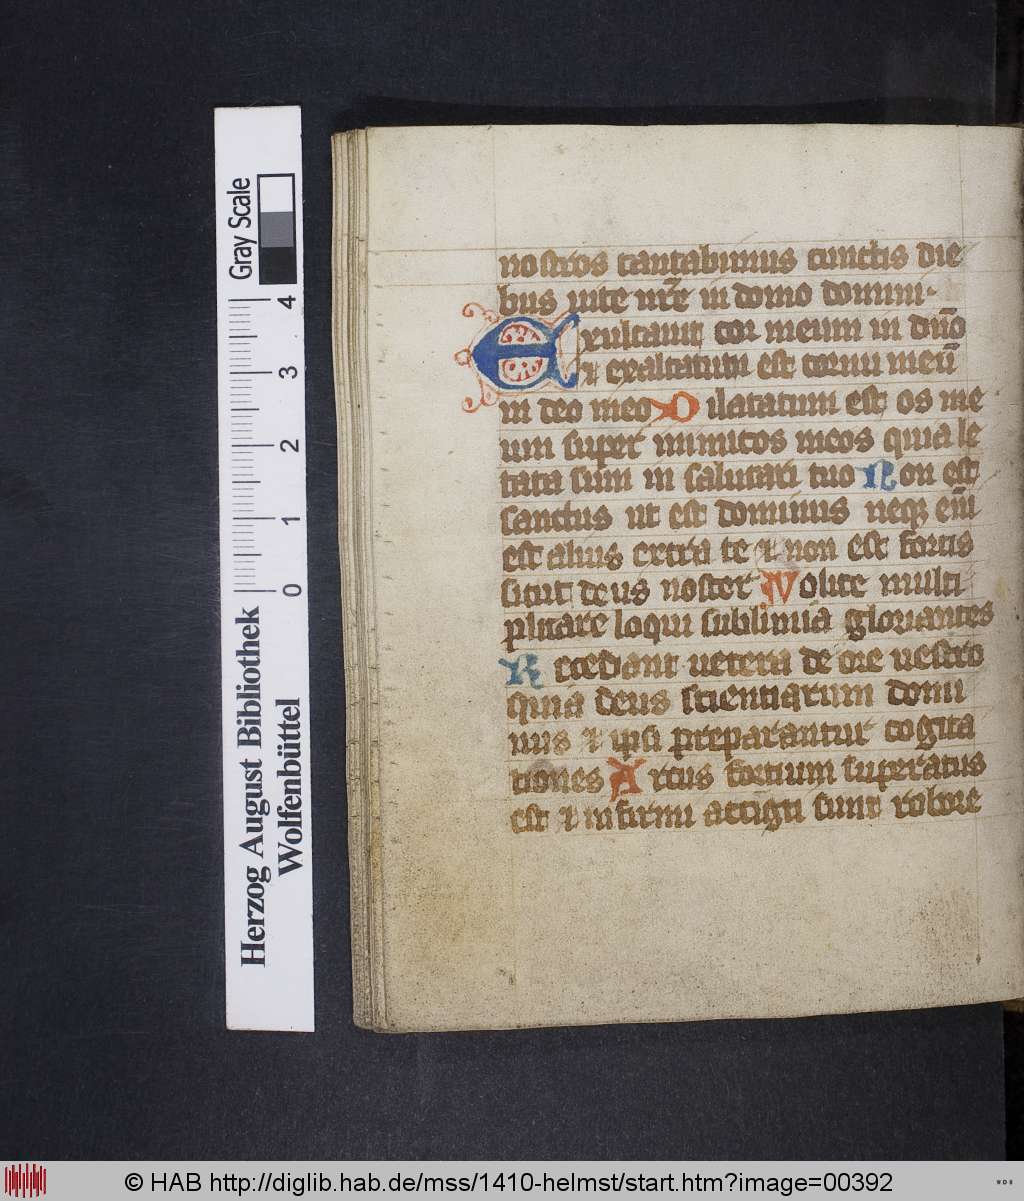 nostros cantabimus cunctis die
bus uite nr̄e in domo domini·
Exultauit cor meum in dn̄o
⁊ exaltatum est cornu meū
in deo meo Dilatatum est os me
um super inimicos meos quia le
tata sum in salutari tuo Non est
sanctus ut est dominus neqꝫ em̄
est alius extra te ⁊ non est fortis
sicut deus noster Nolite multi
plicare loqui sublimia gloriantes
Recedant uetera de ore uestro
quia deus scientiarum domi
nus ⁊ ipsi preparantur cogita
tiones Arcus fortium superatus
est ⁊ infirmi accigti sunt robore
Gray Scale
4
3
2
1
0
Herzog August Bibliothek
Wolfenbüttel
© HAB http://diglib.hab.de/mss/1410-helmst/start.htm?image=00392